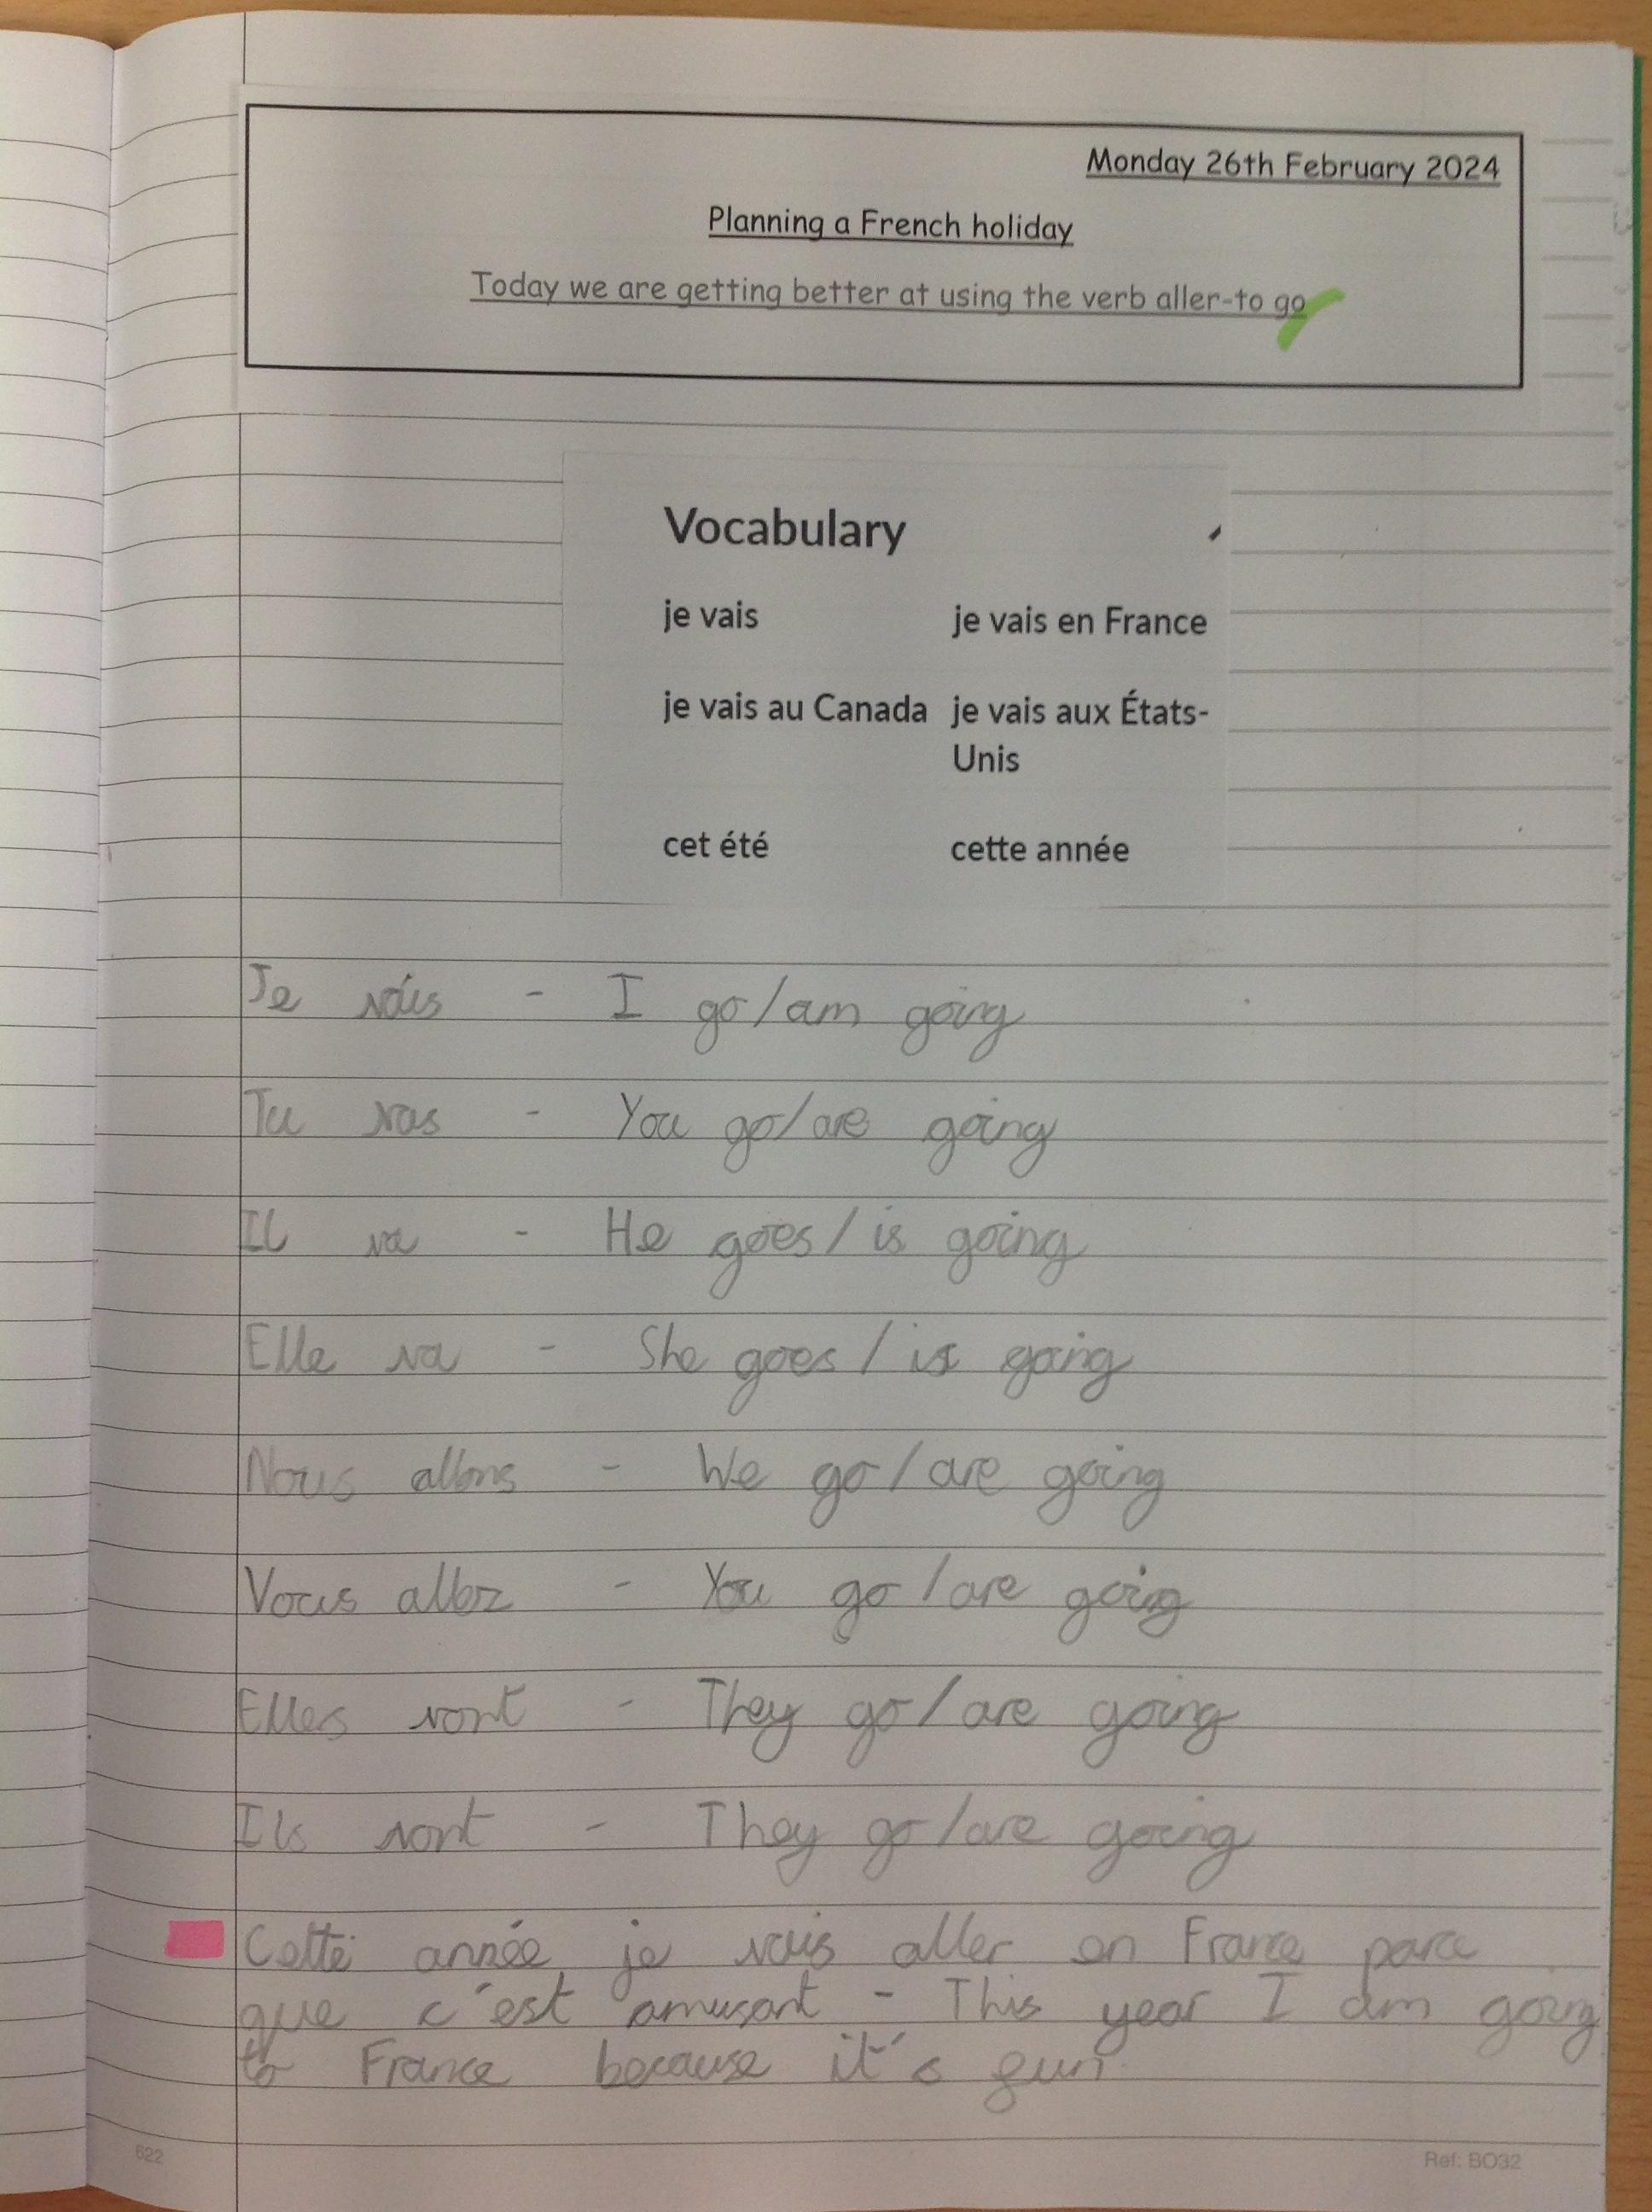 Monday 26th February 2024
Planning a French holiday
Today we are getting better at using the verb aller-to go
Vocabulary
je vais je vais en France
je vais au Canada je vais aux États-
Unis
cet été cette année
Je vais - I go/am going
Tu vas - You go/are going
Il va - He goes/is going
Elle va - She goes/is going
Nous allons - We go/are going
Vous allez - You go/are going
Elles vont - They go/are going
Ils vont - They go/are going
Cette année je vais aller en France parce
que c'est amusant - This year I am going
to France because it's fun
622 Ref: BO32